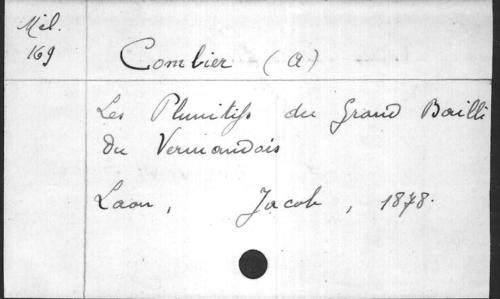 Mél.
169
Combier (A)
Les Plumitifs du Grand Bailli
du Vermandois
Laon, Jacob, 1878.